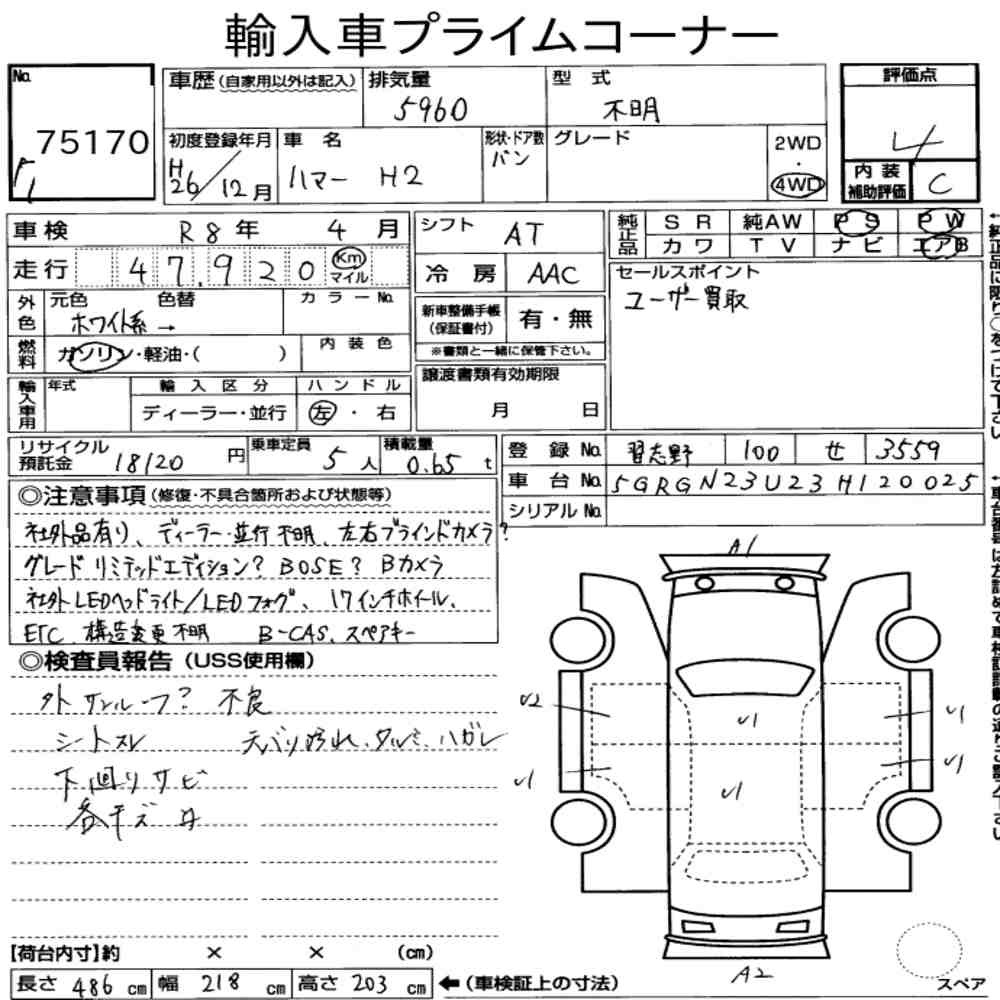 輸入車プライムコーナー
No. 75170
車歴(自家用以外は記入) 排気量 5960 型式 不明
初度登録年月 H26/12月 車名 ハマー H2 形状・ドア数 バン グレード 2WD・4WD
評価点 4
内装補助評価 C
車検 R8年 4月
走行 47,920 Km マイル
シフト AT
冷房 AAC
純正品 SR 純AW PS PW
カワ TV ナビ エアB
外色 元色 色替 カラーNo.
ホワイト系→
燃料 ガソリン・軽油・( ) 内装色
新車整備手帳(保証書付) 有・無
※書類と一緒に保管下さい。
セールスポイント
ユーザー買取
輸入車用 年式 輸入区分 ハンドル
ディーラー・並行 左・右
譲渡書類有効期限
月 日
リサイクル預託金 18120円 乗車定員 5人 積載量 0.65t
登録No. 習志野 100 せ 3559
車台No. 5GRGN23U23H120025
シリアルNo.
◎注意事項(修復・不具合箇所および状態等)
社外品有り、ディーラー・並行不明、左右ブラインドカメラ?
グレードリミテッドエディション? BOSE? Bカメラ
社外LEDヘッドライト/LEDフォグ、17インチホイール、
ETC 構造変更不明 B-CAS、スペアキー
◎検査員報告(USS使用欄)
外 サンルーフ? 不良
シートスレ 天バリ汚れ、タルミ、ハガレ
下回りサビ
各キズ 凹
A1
U2 U1 U1
U1 U1 U1
A2
スペア
【荷台内寸】約 × × (cm)
長さ 486cm 幅 218cm 高さ 203cm ←(車検証上の寸法)
↑純正品に限り○をつけて下さい